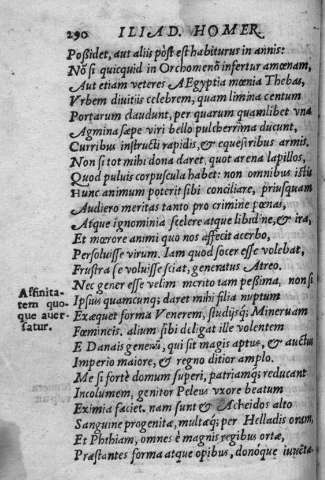 290 ILIAD. HOMER.
Poßidet, aut aliis pòst est habiturus in annis:
Nõ si quicquid in Orchomenõ infertur amœnam,
Aut etiam veteres AEgyptia mœnia Thebas,
Vrbem diuitiis celebrem, quam limina centum
Portarum claudunt, per quarum quamlibet vna
Agmina sæpe viri bello pulcherrima ducunt,
Curribus instructi rapidis, & equestribus armis.
Non si tot mihi dona daret, quot arena lapillos,
Quod puluis corpuscula habet: non omnibus istis
Hunc animum poterit sibi conciliare, priusquam
Audiero meritas tanto pro crimine pœnas,
Atque ignominia scelere atque libidine, & ira,
Et mœrore animi quo nos affecit acerbo,
Persoluisse virum. Iam quod socer esse volebat,
Frustra se voluisse sciat, generatus Atreo.
Nec gener esse velim merito tam peßima, non si
Affinita-
tem quo-
que auer-
satur.
Ipsius quamcunq; daret mihi filia nuptum
Exæquet forma Venerem, studijsq́; Mineruam
Fœmineis. alium sibi deligat ille volentem
E Danais generũ, qui sit magis aptus, & auctus
Imperio maiore, & regno ditior amplo.
Me si fortè domum superi, patriamq́; reducant
Incolumem, genitor Peleus vxore beatum
Eximia faciet. nam sunt & Acheidos alto
Sanguine progenitæ, multæq́; per Helladis oram,
Et Phthiam, omnes è magnis regibus ortæ,
Præstantes forma atque opibus, donóque iuuncta